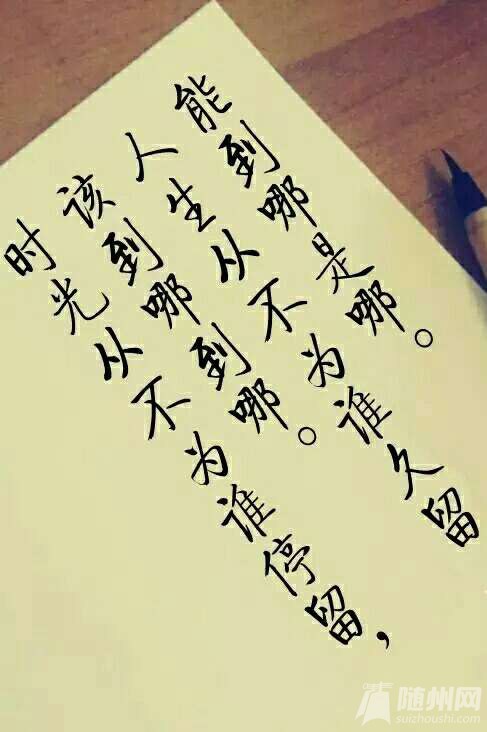 时光从不为谁停留，
该到哪到哪。
人生从不为谁久留
能到哪是哪。
随州网
suizhoushi.com